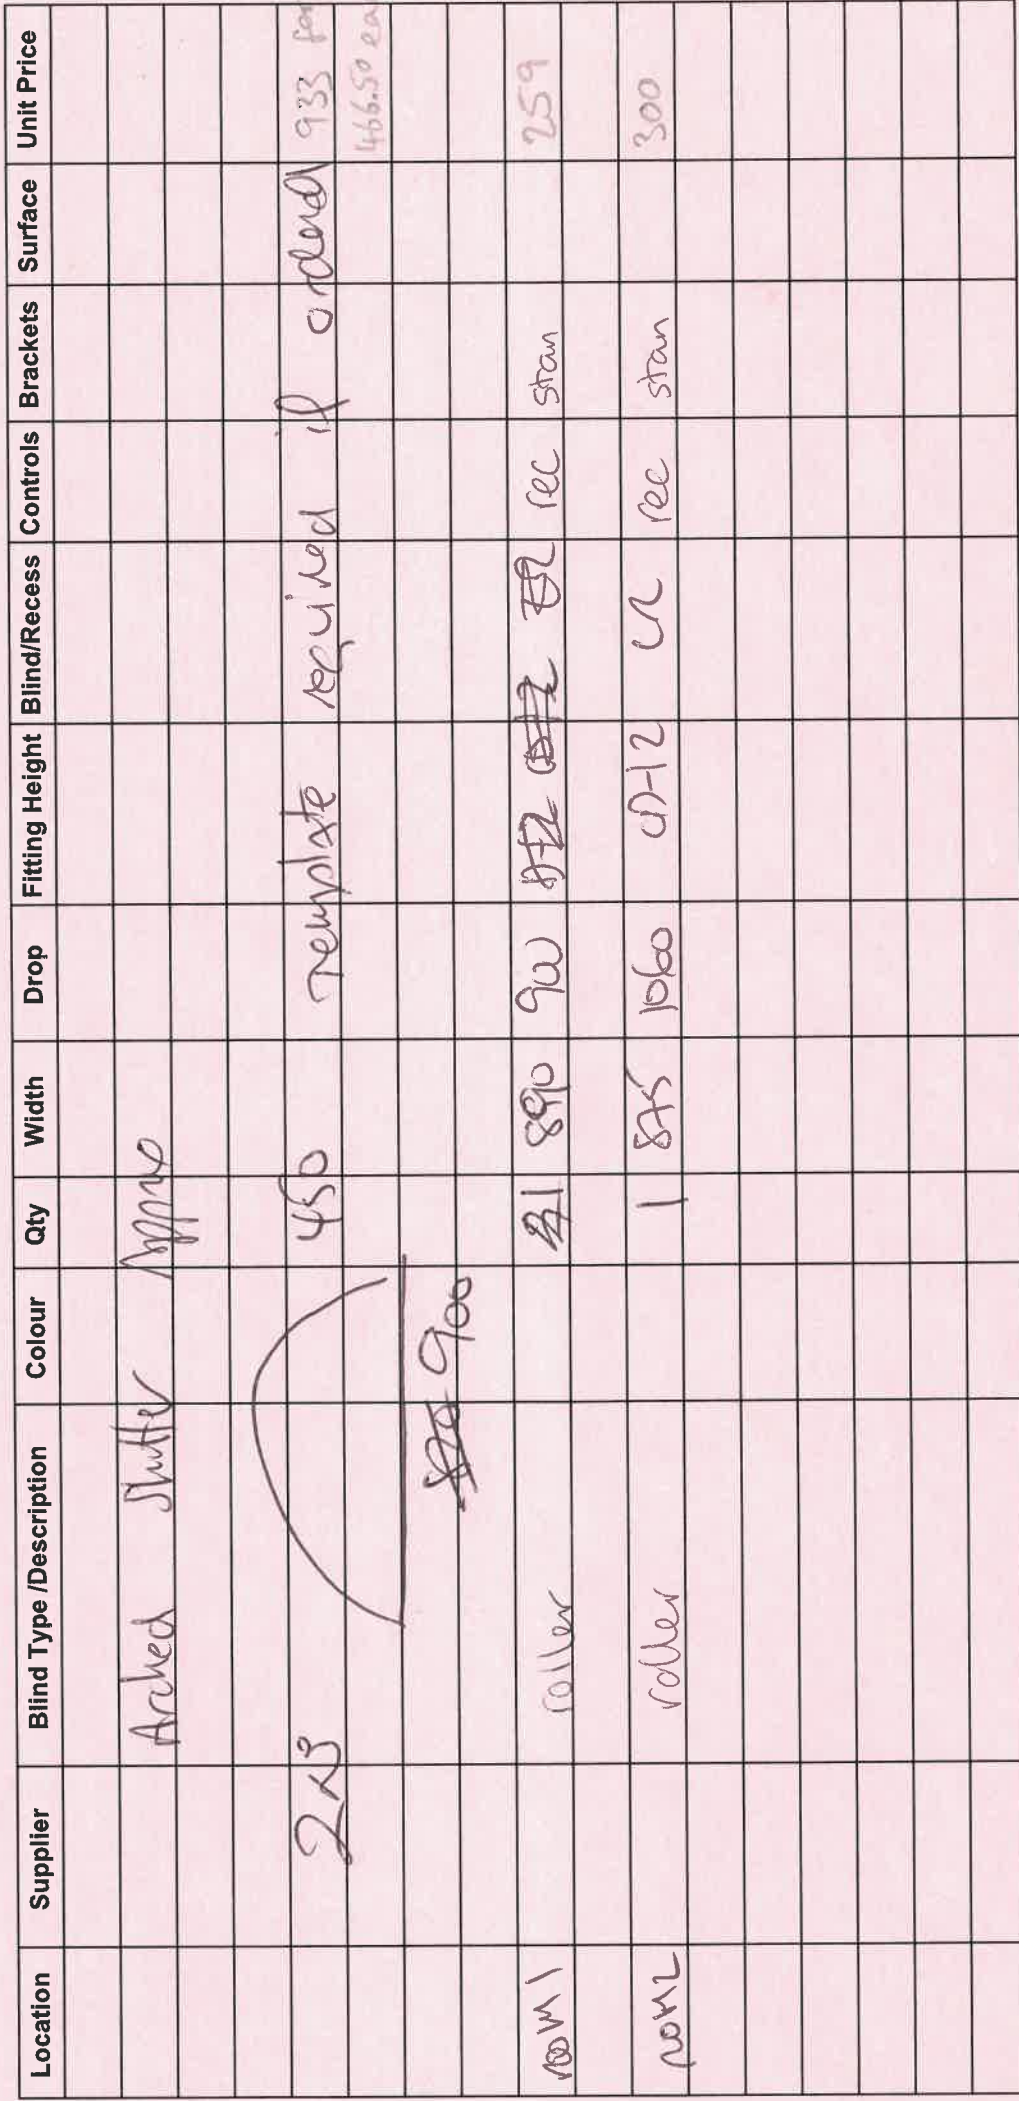 Location Supplier Blind Type /Description Colour Qty Width Drop Fitting Height Blind/Recess Controls Brackets Surface Unit Price
Arched Shutter Approx
2 No 450 Template required if ordered 933 for
466.50 ea
900
room 1 roller 1 890 900 rec stan 259
room 2 roller 1 875 1060 rec stan 300